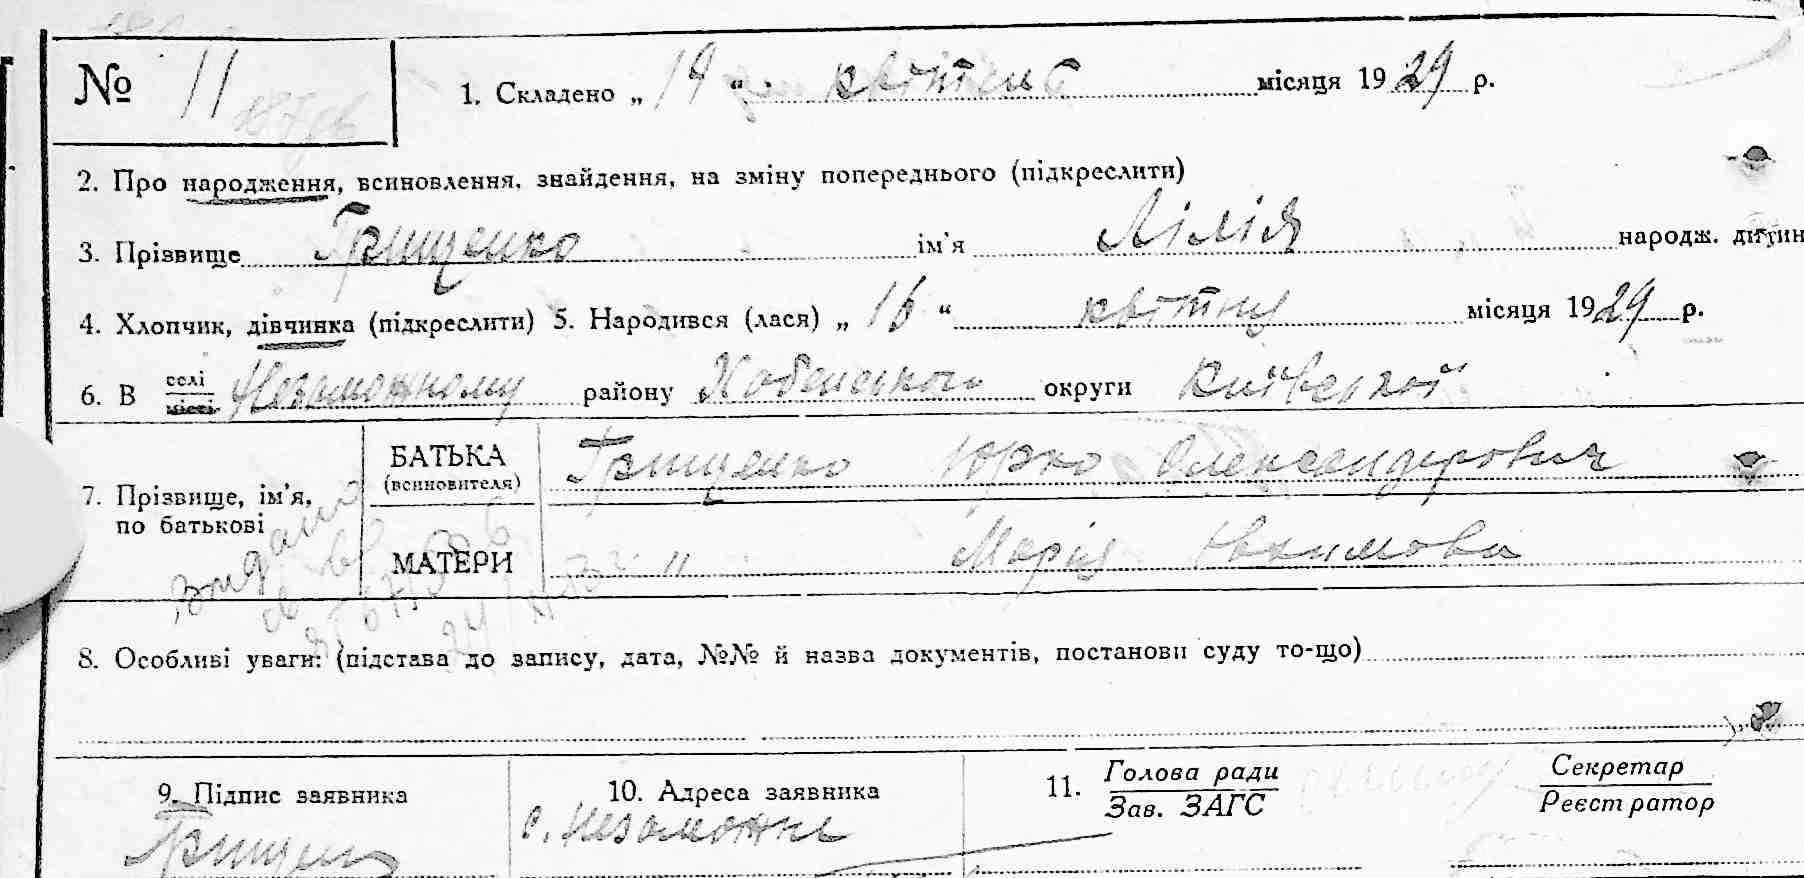 № 11 1. Складено „ 19 “ квітня місяця 1929 р.
2. Про народження, всиновлення, знайдення, на зміну попереднього (підкреслити)
3. Прізвище Грищенко ім'я Лілія народж. дитин
4. Хлопчик, дівчинка (підкреслити) 5. Народився (лася) „ 16 “ квітня місяця 1929 р.
6. В селі місті Незаможному району Хабенського округи Київської
7. Прізвище, ім'я, по батькові
БАТЬКА (всиновителя) Грищенко Юрко Олександрович
МАТЕРИ " Марія Юхимова
Видано
8. Особливі уваги: (підстава до запису, дата, №№ й назва документів, постанови суду то-що)
9. Підпис заявника
Грищен
10. Адреса заявника
с. Незаможне
11. Голова ради
Зав. ЗАГС
Секретар
Реєстратор